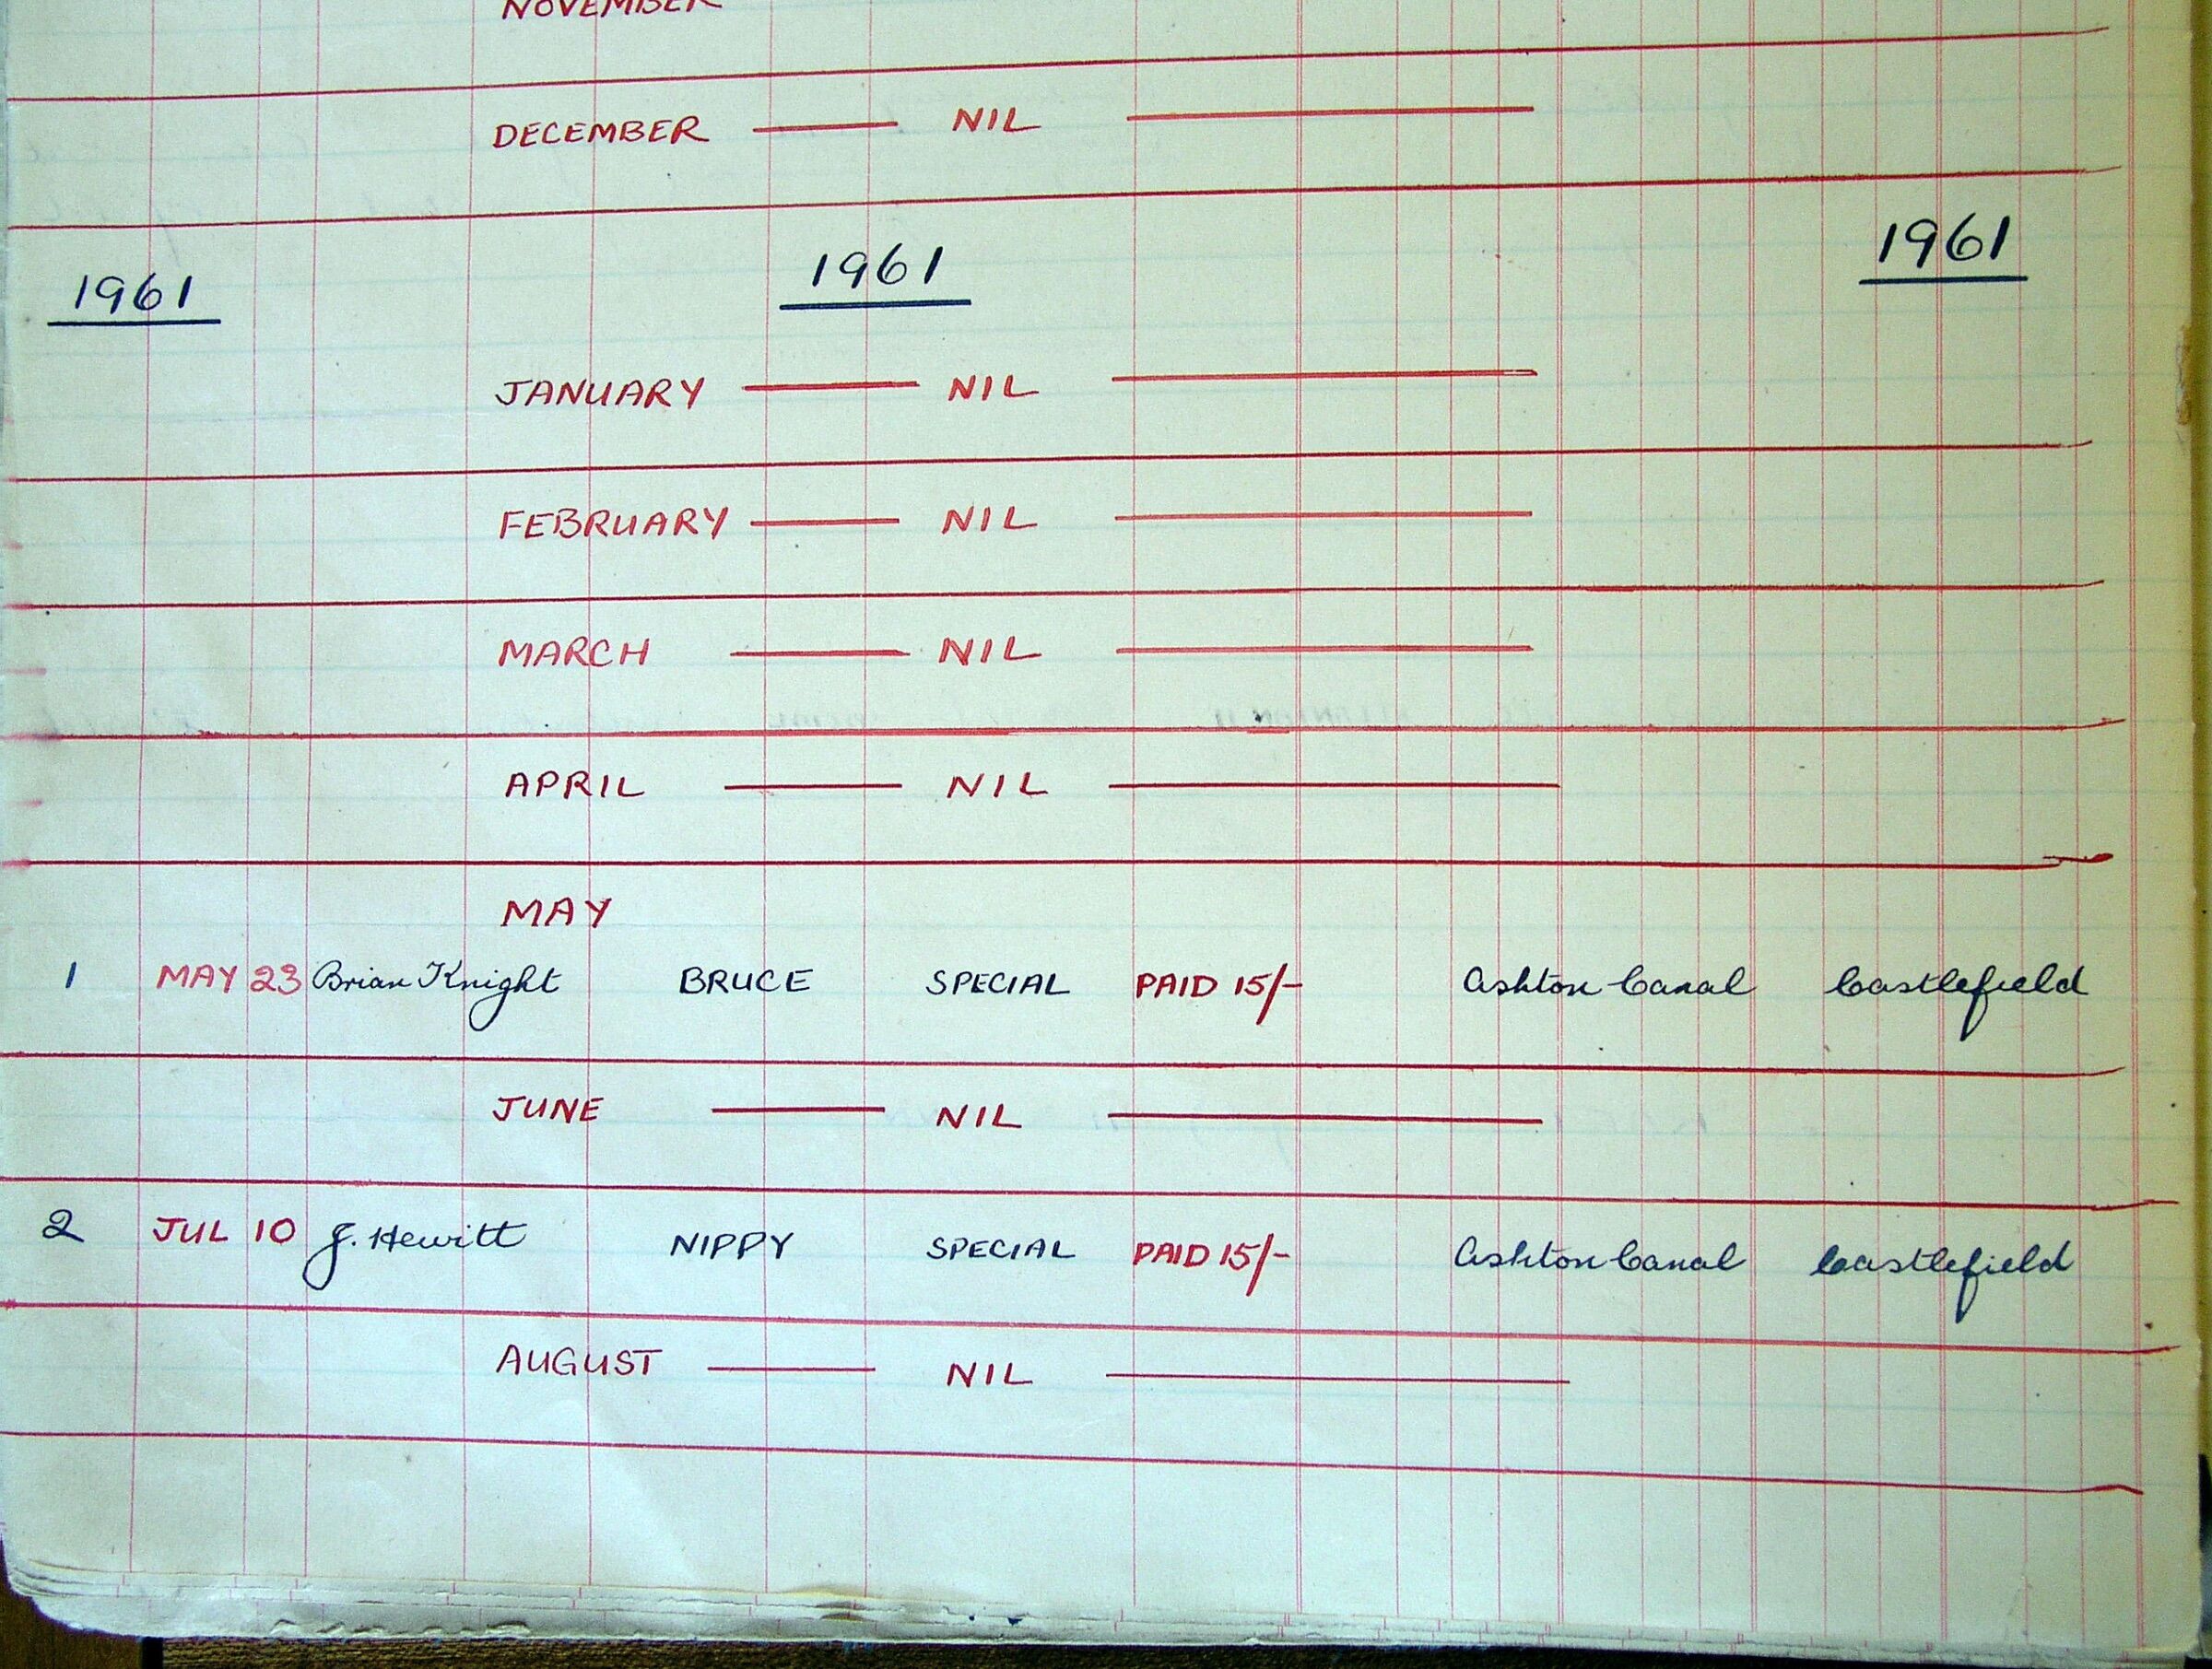 NOVEMBER
DECEMBER — NIL —
1961 1961 1961
JANUARY — NIL —
FEBRUARY — NIL —
MARCH — NIL —
APRIL — NIL —
MAY
1 MAY 23 Brian Knight BRUCE SPECIAL PAID 15/- Ashton Canal Castlefield
JUNE — NIL —
2 JUL 10 J. Hewitt NIPPY SPECIAL PAID 15/- Ashton Canal Castlefield
AUGUST — NIL —